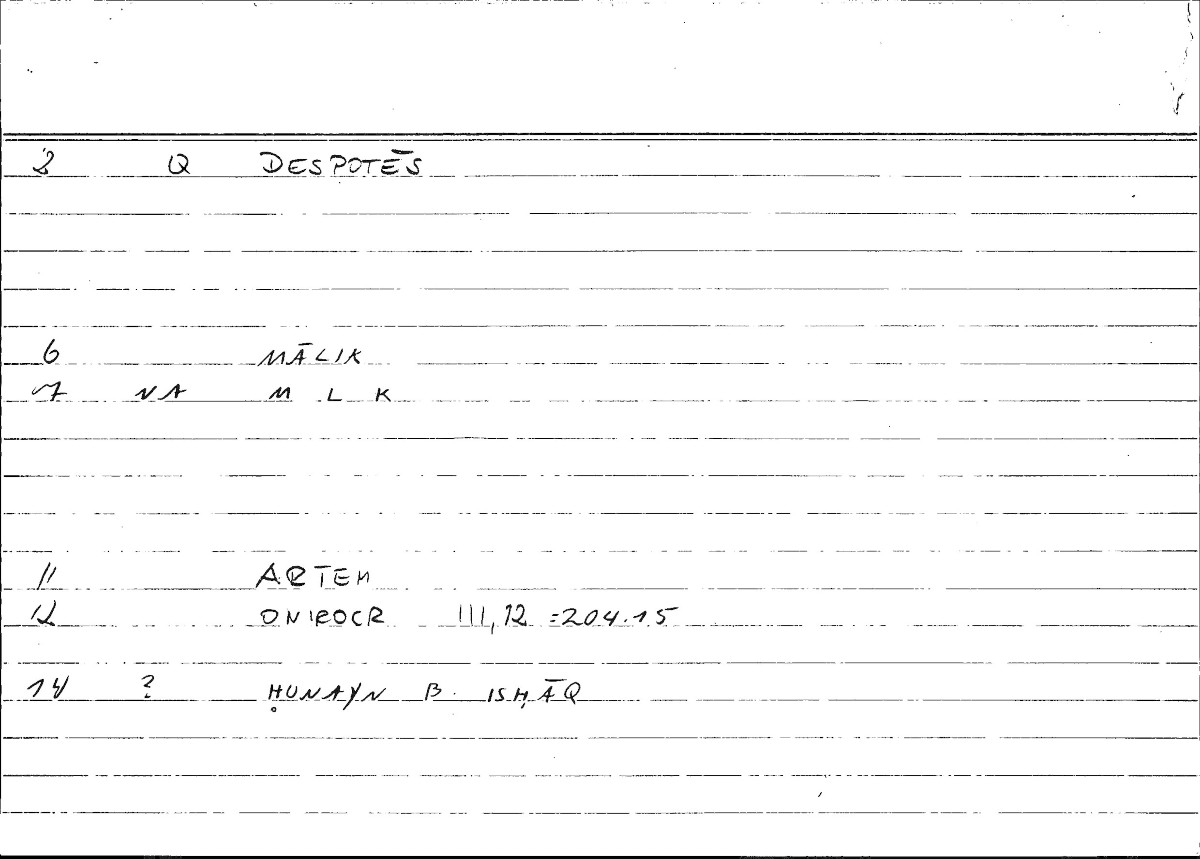 3 Q DESPOTĒS
6 MĀLIK
7 NA M L K
11 ARTEM
12 ONIROCR III,12 =204.15
14 ? ḤUNAYN B. ISḤĀQ